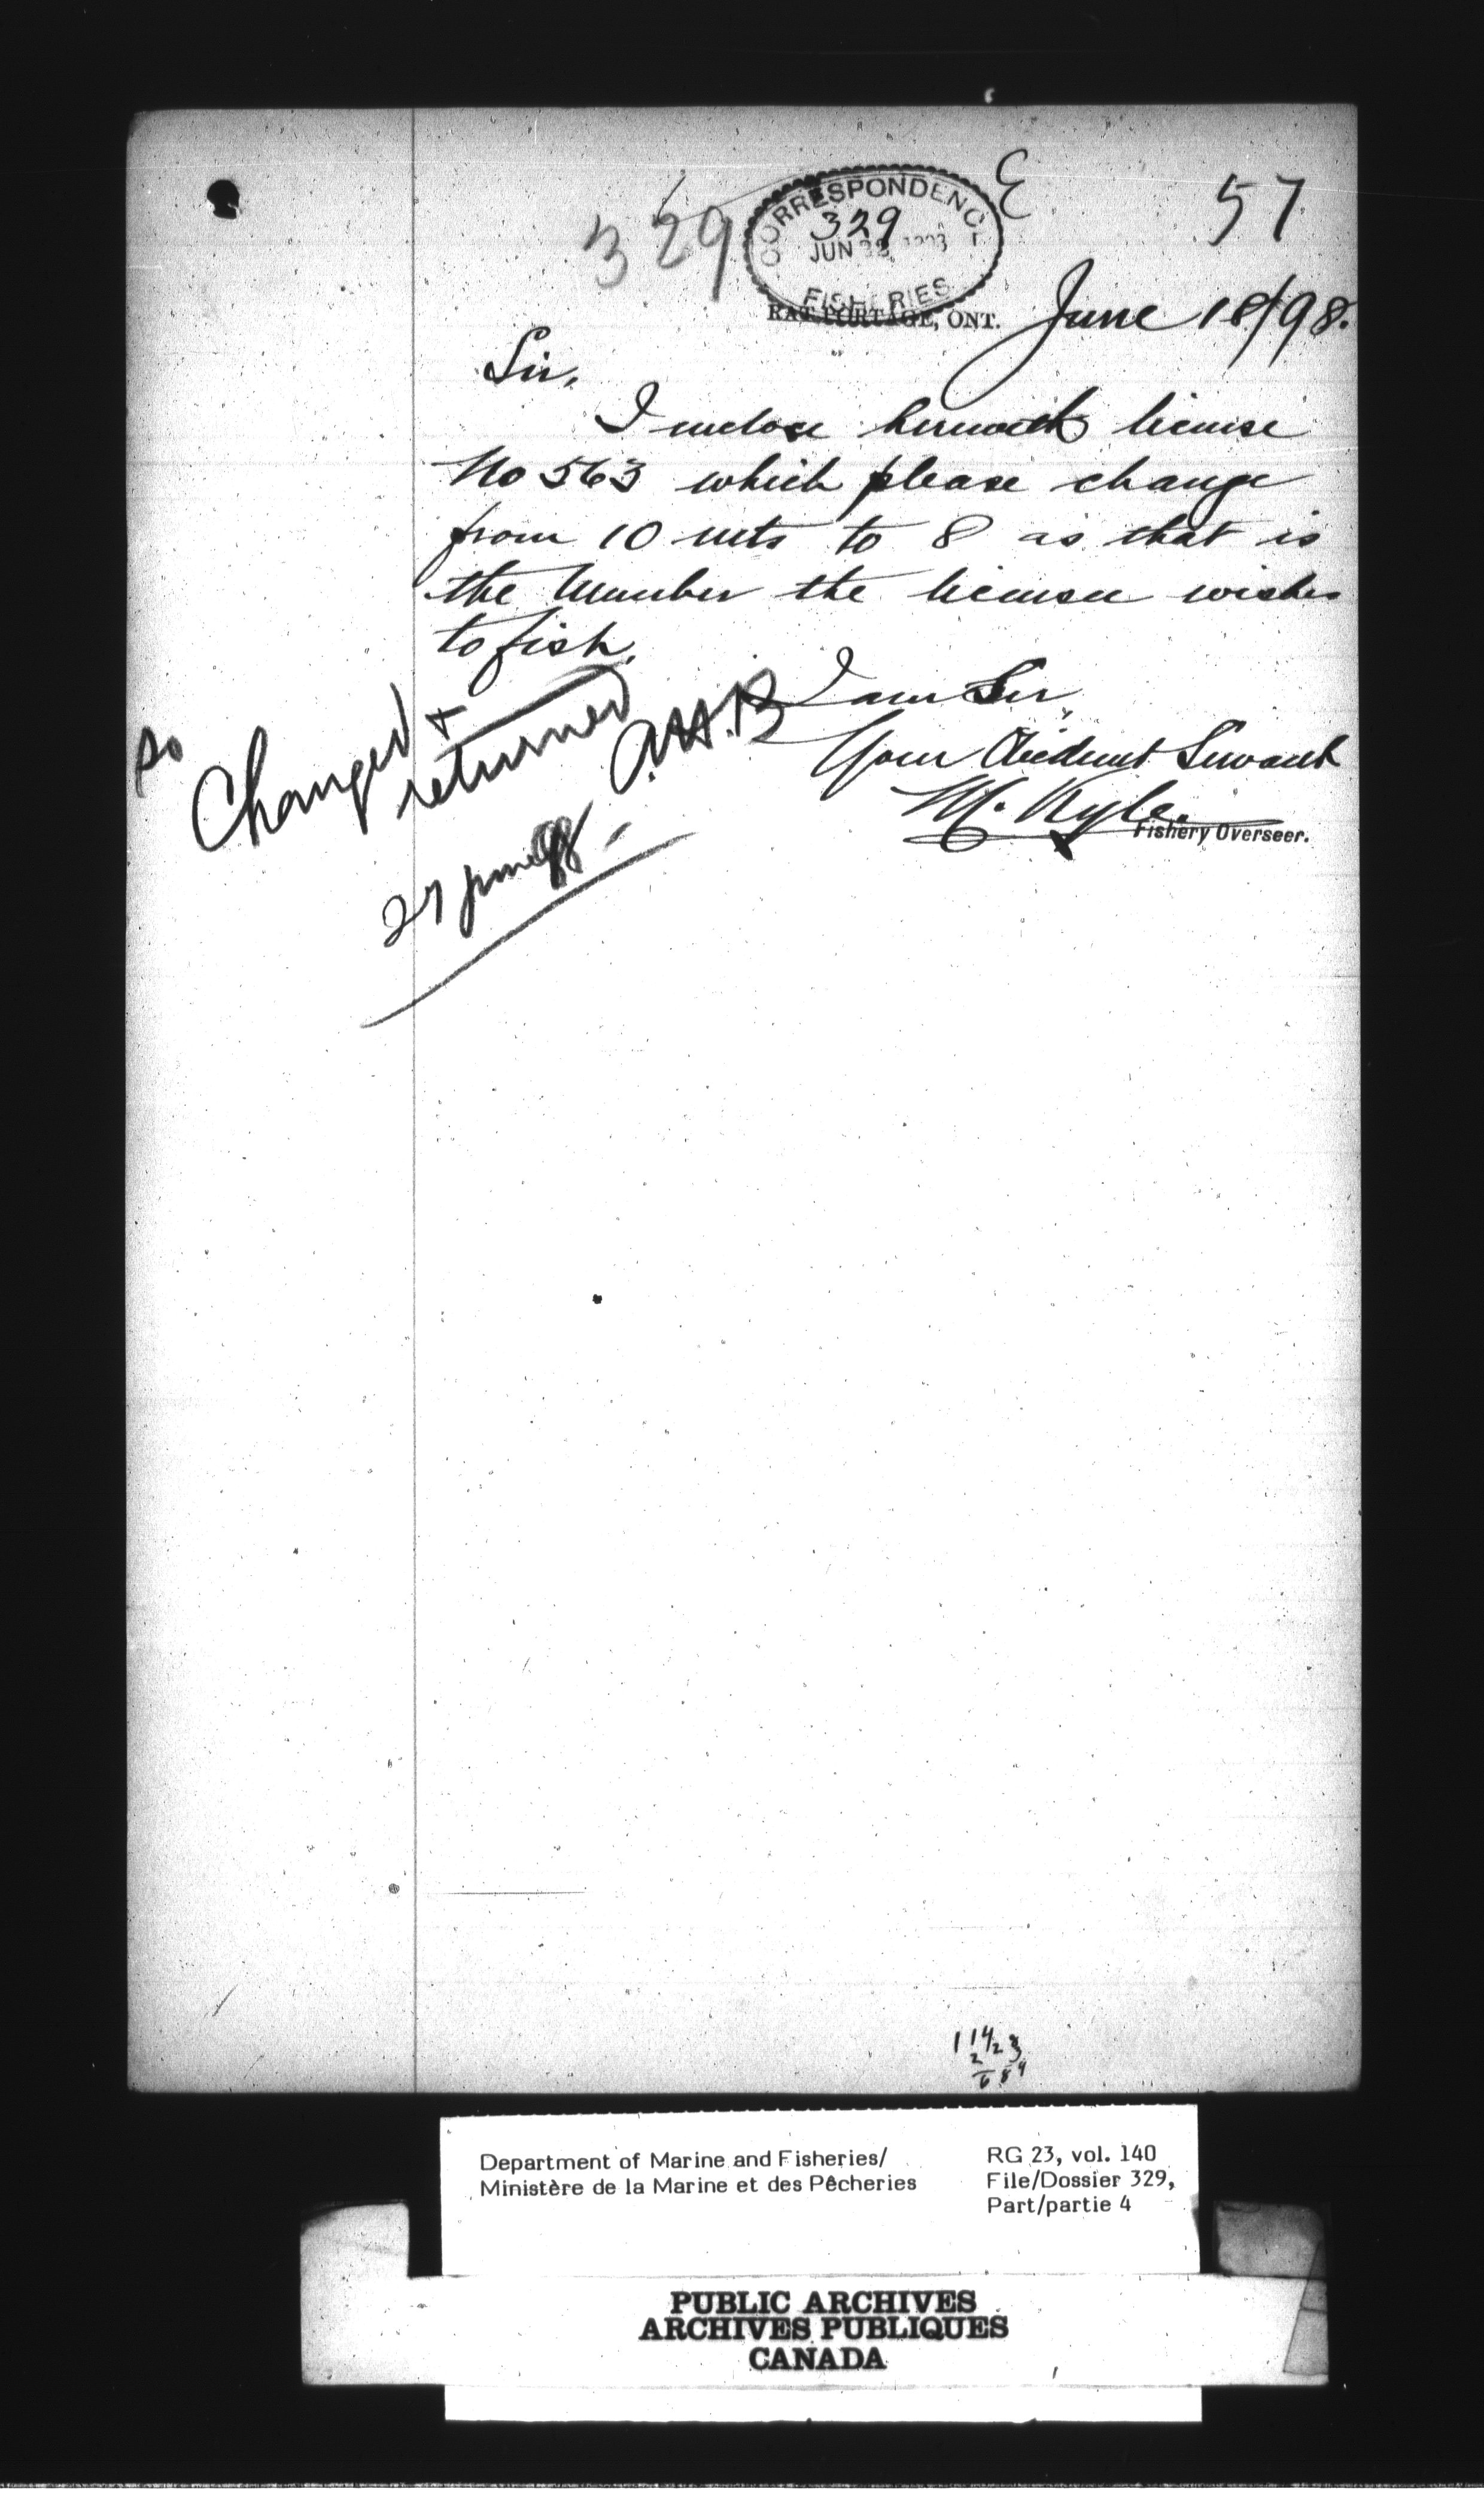 E
57
329
CORRESPONDENCE
329
JUN 22 1898
FISHERIES
RAT PORTAGE, ONT. June 18/98.
Sir,
I enclose herewith license
No 563 which please change
from 10 nets to 8 as that is
the Number the licensee wishes
to fish.
I am Sir,
Your Obedient Servant
M. Kyle.
Fishery Overseer.
so
Changed &
returned
27 June 98 -
Department of Marine and Fisheries/
Ministère de la Marine et des Pêcheries
RG 23, vol. 140
File/Dossier 329,
Part/partie 4
PUBLIC ARCHIVES
ARCHIVES PUBLIQUES
CANADA